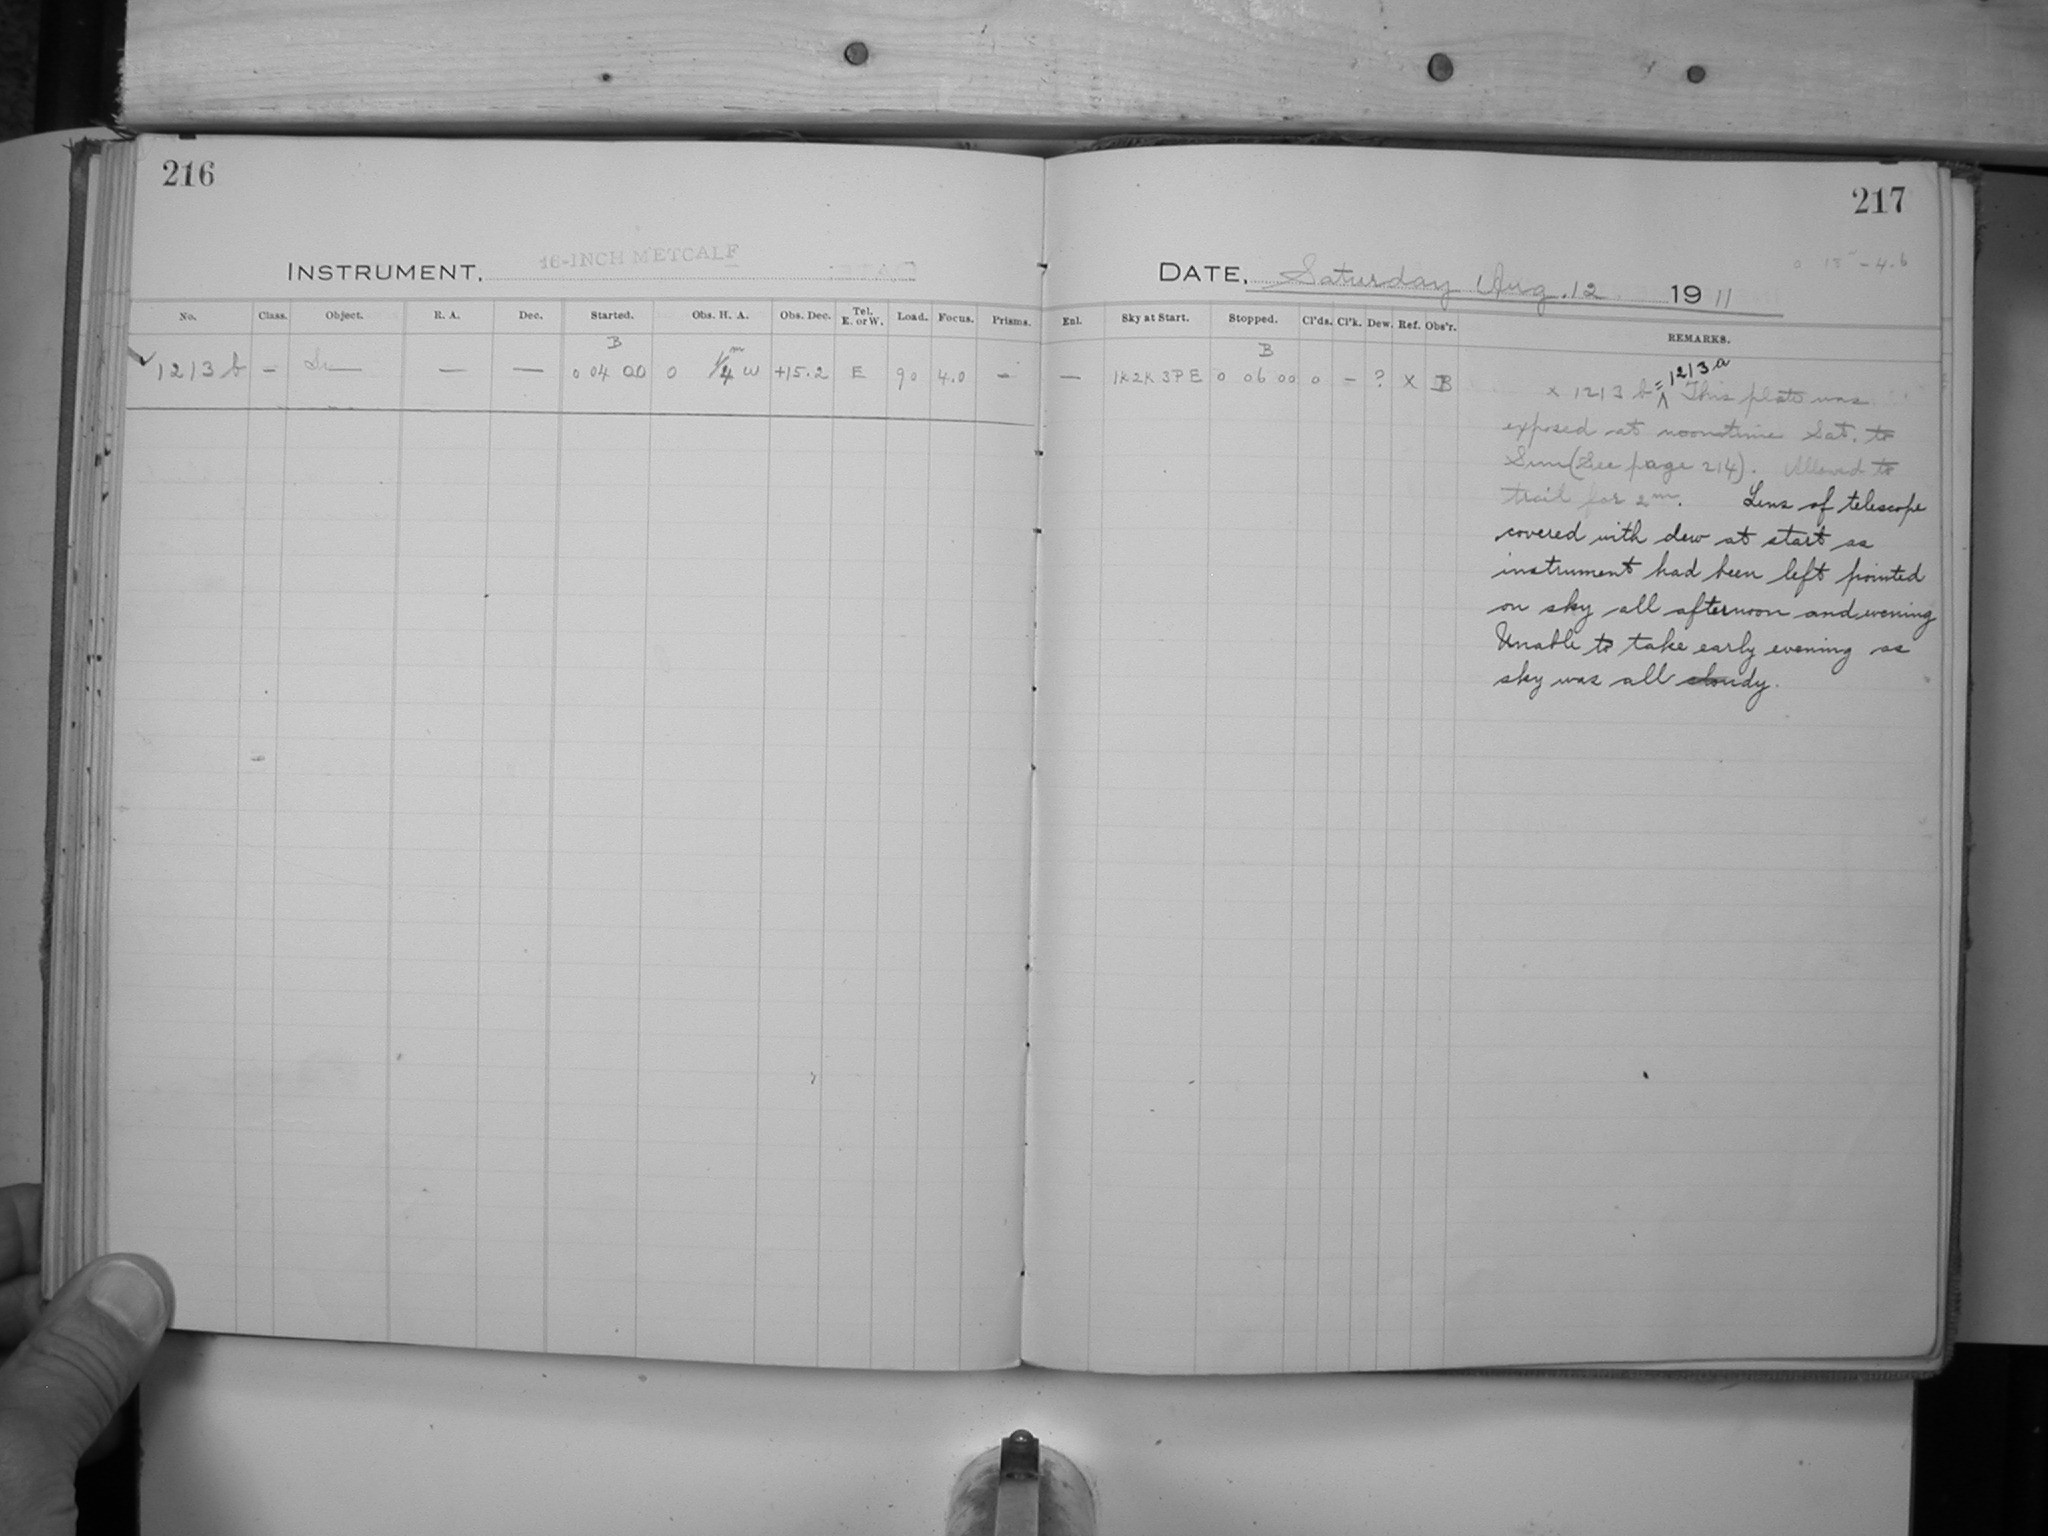 216
217
INSTRUMENT, 16-INCH METCALF
DATE, Saturday Aug. 12 1911
No. Class. Object. R. A. Dec. Started. Obs. H. A. Obs. Dec. Tel. E. or W. Load. Focus. Prisms. Enl. Sky at Start. Stopped. Cl'ds. Cl'k. Dew. Ref. Obs'r. REMARKS.
B B
1213 b – — — 0 04 00 0 W +15.2 E 90 4.0 – — 1K2K3PE 0 06 00 0 – ? x B
x 1213 b = 1213 a This plate was
exposed at noontime Sat. to
Sun (See page 214). Allowed to
trail for 2m. Lens of telescope
covered with dew at start as
instrument had been left pointed
on sky all afternoon and evening
Unable to take early evening as
sky was all cloudy.